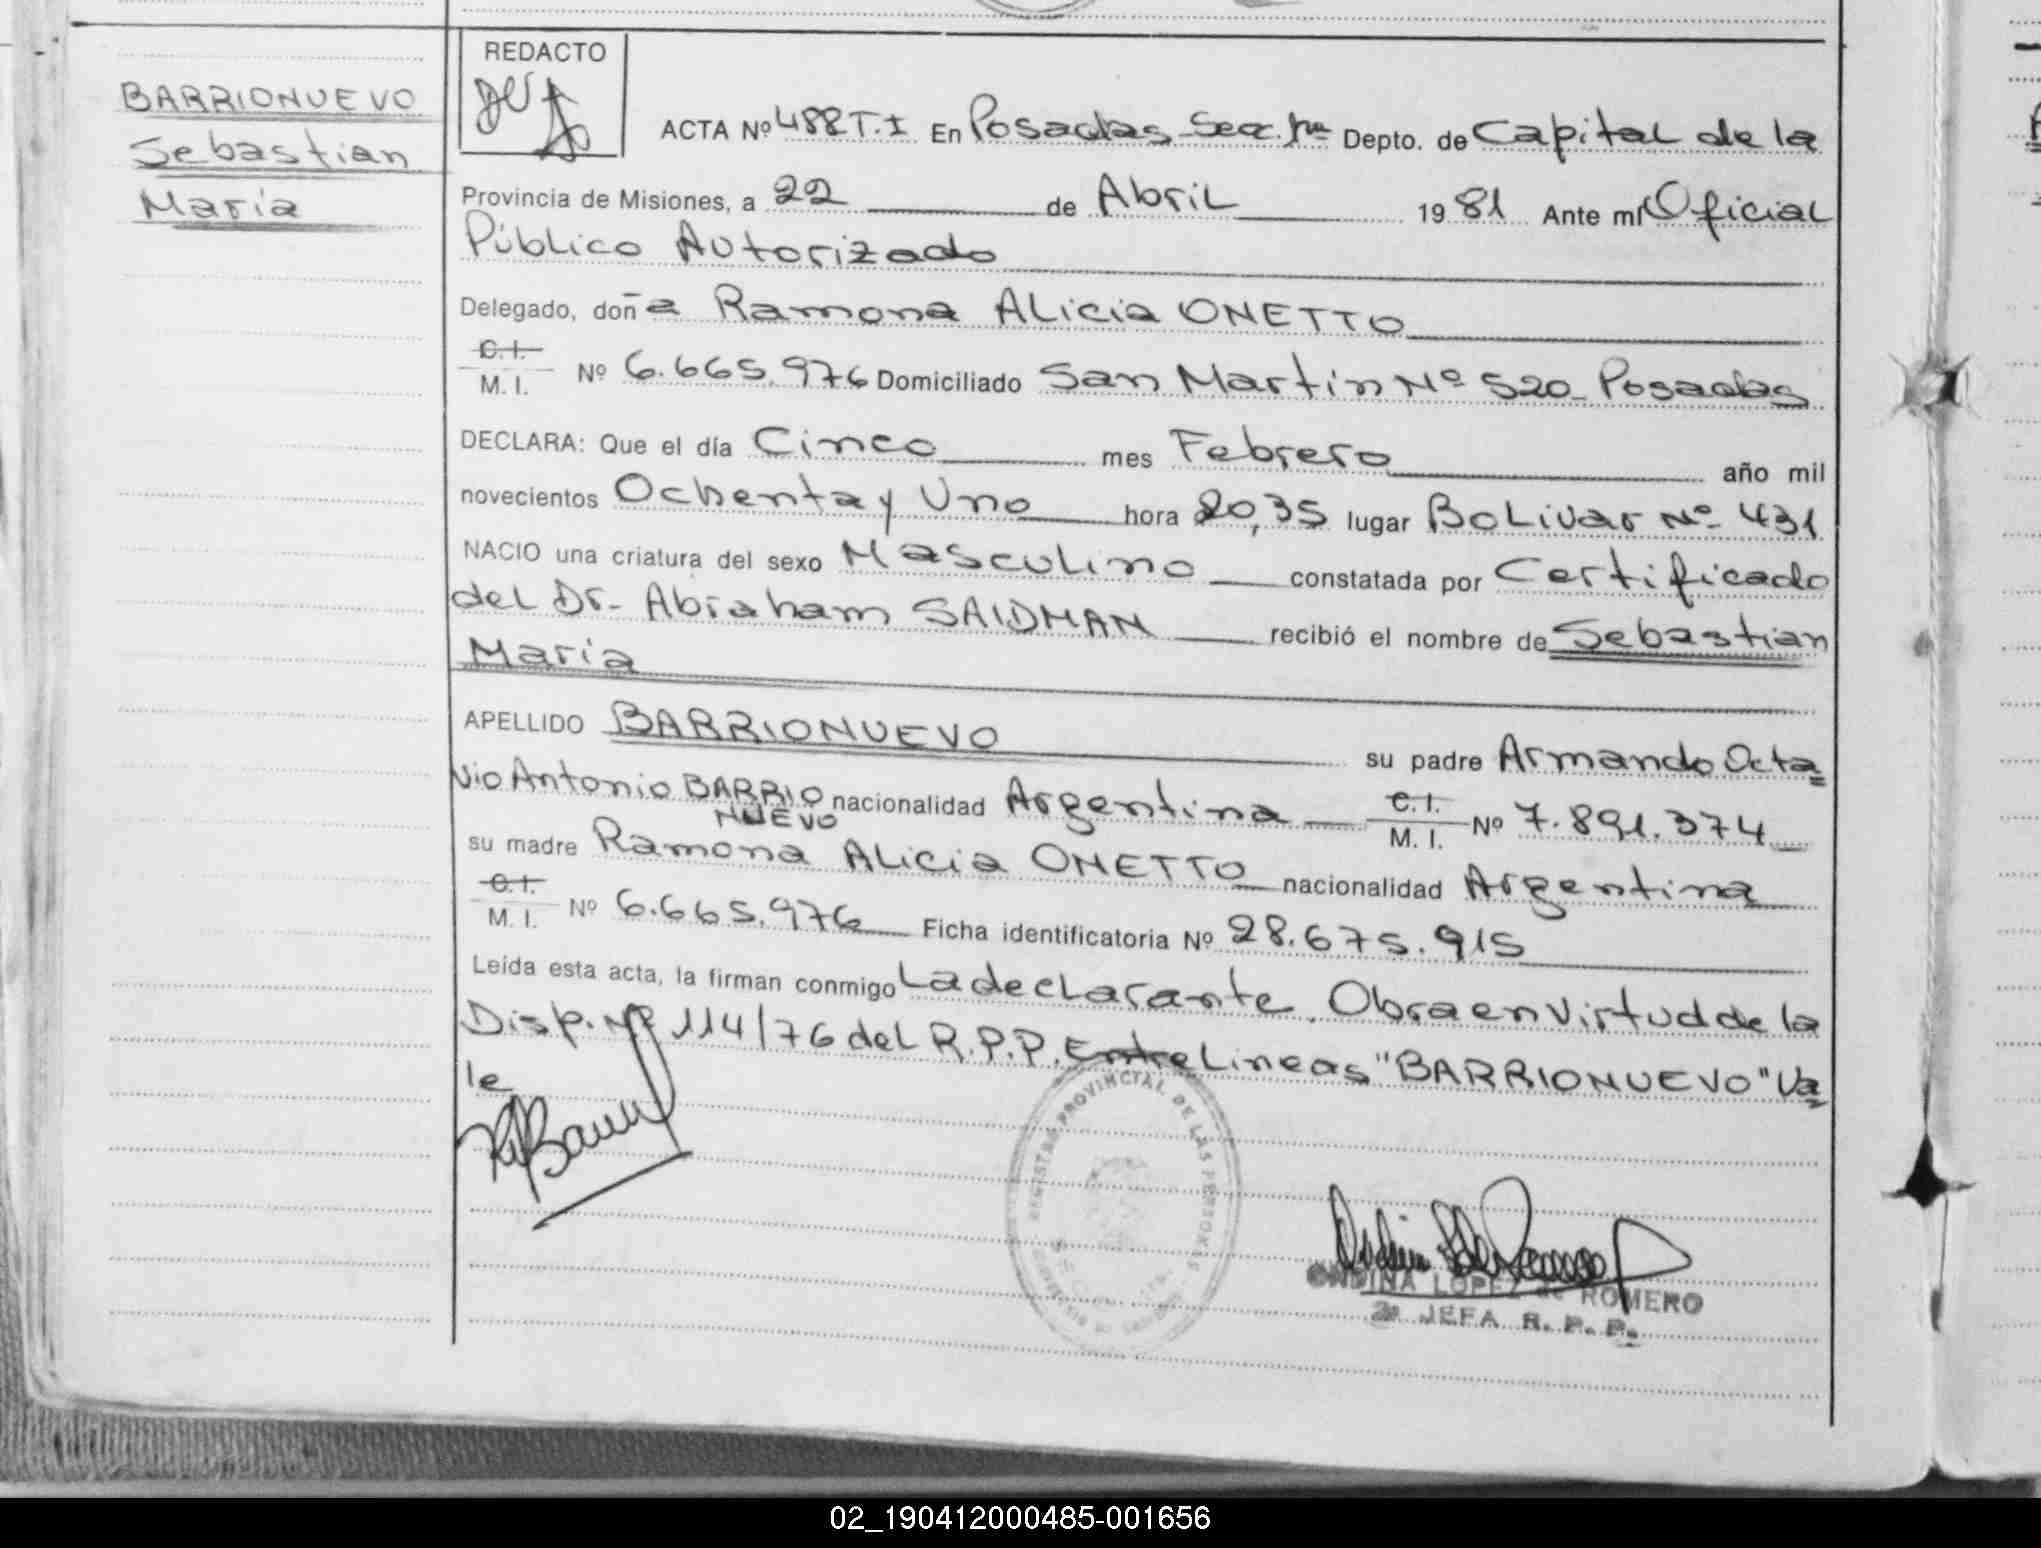 BARRIONUEVO
Sebastian
María
REDACTO
ACTA Nº 488 T.I En Posadas Secc. 1ra Depto. de Capital de la
Provincia de Misiones, a 22 de Abril 1981 Ante mí Oficial
Público Autorizado
Delegado, doña Ramona Alicia ONETTO
C.I.
M. I. Nº 6.665.976 Domiciliado San Martín Nº 520_ Posadas
DECLARA: Que el día Cinco mes Febrero año mil
novecientos Ochenta y Uno hora 20,35 lugar Bolivar Nº 431
NACIO una criatura del sexo Masculino constatada por Certificado
del Dr. Abraham SAIDMAN recibió el nombre de Sebastian
María
APELLIDO BARRIONUEVO su padre Armando Octa=
vio Antonio BARRIO nacionalidad Argentina C.I.
NUEVO M. I. Nº 7.891.374
su madre Ramona Alicia ONETTO nacionalidad Argentina
C.I.
M. I. Nº 6.665.976 Ficha identificatoria Nº 28.675.915
Leída esta acta, la firman conmigo La declarante. Obra en virtud de la
Disp. Nº 114/76 del R.P.P. Entre Lineas "BARRIONUEVO" Va=
le
REGISTRO PROVINCIAL DE LAS PERSONAS
ONDINA LOPEZ de ROMERO
2a JEFA R. P. P.
02_190412000485-001656